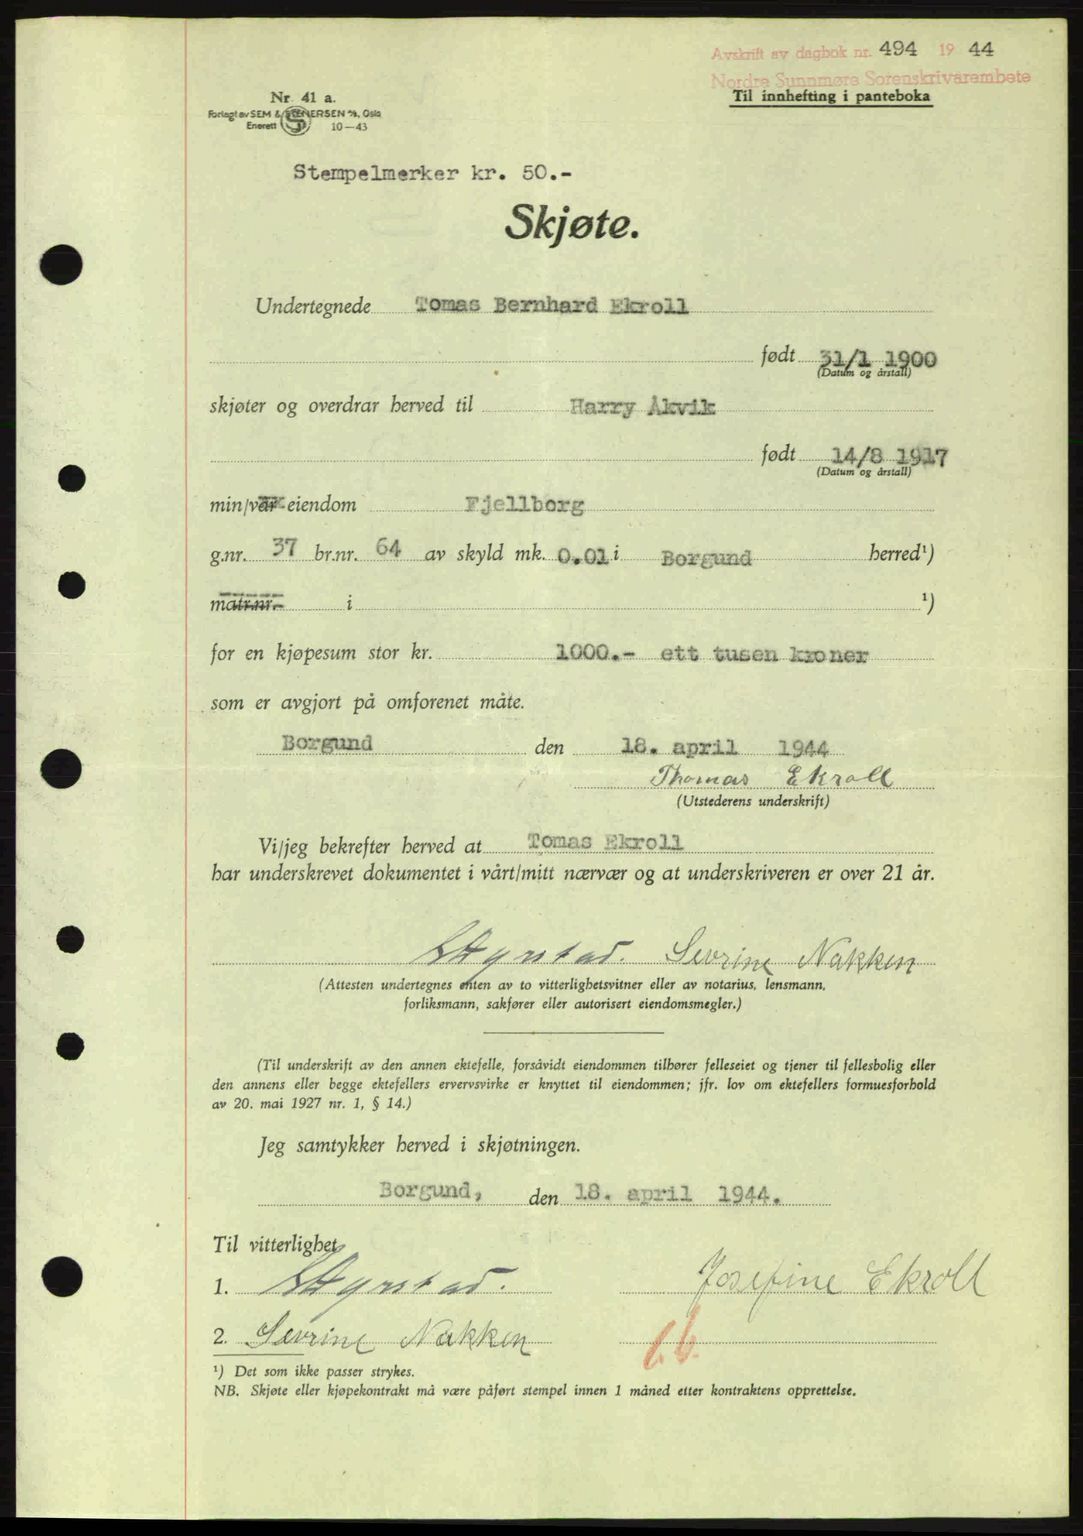 Avskrift av dagbok nr. 494 1944
Nordre Sunnmøre Sorenskrivarembete
Til innhefting i panteboka
Nr. 41 a.
Forlagt av SEM & STENERSEN A/S, Oslo
Enerett 10—43
Stempelmerker kr. 50.-
Skjøte.
Undertegnede Tomas Bernhard Ekroll
født 31/1 1900
(Datum og årstall)
skjøter og overdrar herved til Harry Åkvik
født 14/8 1917
(Datum og årstall)
min/vår eiendom Fjellborg
g.nr. 37 br.nr. 64 av skyld mk. 0.01 i Borgund herred¹)
matr.nr. i ¹)
for en kjøpesum stor kr. 1000.- ett tusen kroner
som er avgjort på omforenet måte.
Borgund den 18. april 1944
Thomas Ekroll
(Utstederens underskrift)
Vi/jeg bekrefter herved at Tomas Ekroll
har underskrevet dokumentet i vårt/mitt nærvær og at underskriveren er over 21 år.
Sevrine Nakken
(Attesten undertegnes enten av to vitterlighetsvitner eller av notarius, lensmann,
forliksmann, sakfører eller autorisert eiendomsmegler.)
(Til underskrift av den annen ektefelle, forsåvidt eiendommen tilhører felleseiet og tjener til fellesbolig eller
den annens eller begge ektefellers ervervsvirke er knyttet til eiendommen; jfr. lov om ektefellers formuesforhold
av 20. mai 1927 nr. 1, § 14.)
Jeg samtykker herved i skjøtningen.
Borgund, den 18. april 1944.
Til vitterlighet
1. Josefine Ekroll
2. Sevrine Nakken
¹) Det som ikke passer strykes.
NB. Skjøte eller kjøpekontrakt må være påført stempel innen 1 måned etter kontraktens opprettelse.